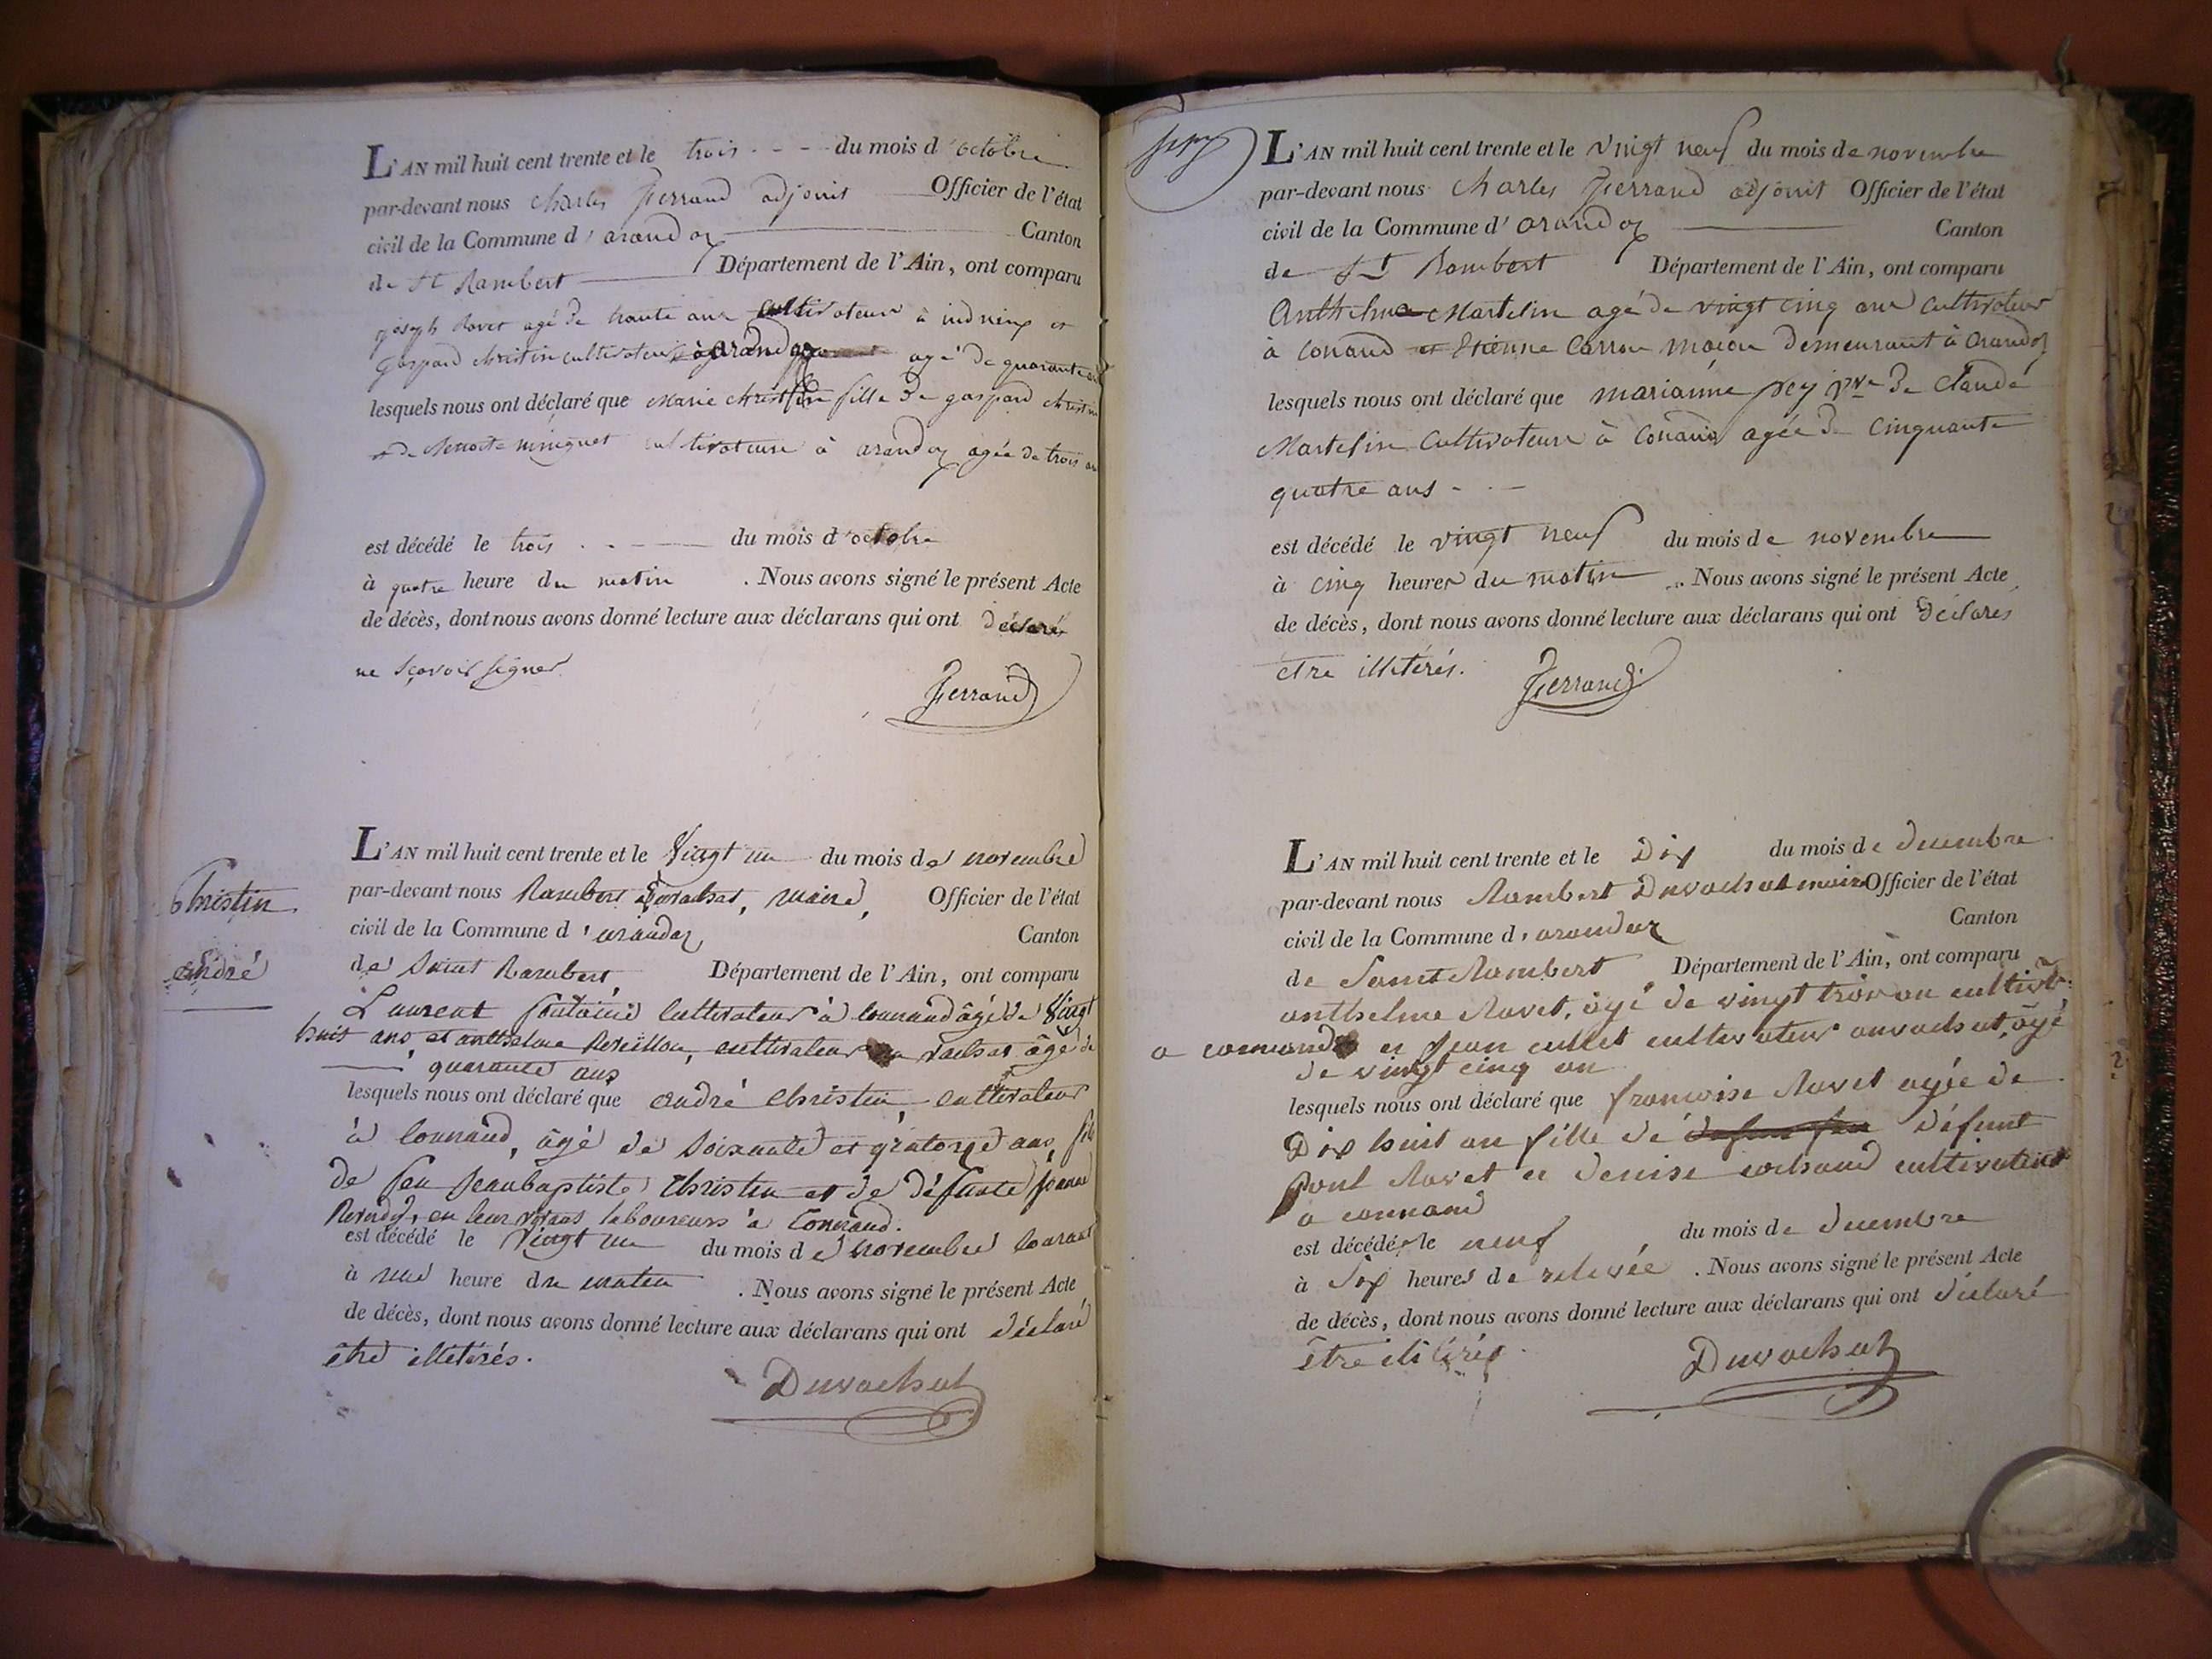 L'AN mil huit cent trente et le trois - - - du mois d'octobre
par-devant nous Charles ferrand adjoint Officier de l'état
civil de la Commune d'arandaz Canton
de St Rambert Département de l'Ain, ont comparu
joseph Ravet agé de trante ans cultivateur à indrieux et
gaspard christin cultivateur à arandaz agé de quarante
lesquels nous ont déclaré que Marie christin fille de gaspard christin
et de Benoite cultivateurs à arandaz agée de trois
est décédé le trois du mois d'octobre
à quatre heure du matin . Nous avons signé le présent Acte
de décès, dont nous avons donné lecture aux déclarans qui ont déclaré
ne sçavoir signer.
ferrand
Christin
andré
L'AN mil huit cent trente et le Vingt un du mois de novembre
par-devant nous Rambert Duvachat, maire, Officier de l'état
civil de la Commune d'arandaz Canton
de Saint Rambert, Département de l'Ain, ont comparu
Laurent fontaine cultivateur à Connand âgé de Vingt
huit ans et anthelme Reveillon, cultivateur au vachat âgé de
quarante ans
lesquels nous ont déclaré que andré Christin, cultivateur
à Connand, âgé de Soixante et quatorze ans, fils
de feu Jeanbaptiste Christin et de défunte
en leur vivans laboureurs à Connand.
est décédé le Vingt un du mois de novembre courant
à une heure du matin . Nous avons signé le présent Acte
de décès, dont nous avons donné lecture aux déclarans qui ont déclaré
être illétérés.
Duvachat
L'AN mil huit cent trente et le vingt neuf du mois de novembre
par-devant nous Charles ferrand adjoint Officier de l'état
civil de la Commune d'arandaz Canton
de St Rambert Département de l'Ain, ont comparu
Anthelme Martelin agé de vingt cinq ans cultivateur
à Conand et Etienne Carron maçon demeurant à arandaz
lesquels nous ont déclaré que marianne pey vve de Claude
Martelin Cultivateure à Conand agée de Cinquante
quatre ans - - -
est décédé le vingt neuf du mois de novembre
à cinq heures du matin . Nous avons signé le présent Acte
de décès, dont nous avons donné lecture aux déclarans qui ont déclarés
etre illitérés.
ferrand
L'AN mil huit cent trente et le Dix du mois de decembre
par-devant nous Rambert Duvachat maire Officier de l'état
civil de la Commune d'arandaz Canton
de Saint Rambert Département de l'Ain, ont comparu
anthelme Ravet, âgé de vingt trois an cultivtr
a connand et jean cullet cultivateur auvachat, âgé
de vingt cinq an
lesquels nous ont déclaré que francoise Ravet agée de
Dix huit an fille de défunt
paul Ravet et denise cochand cultivateur
a connand
est décédée le neuf du mois de decembre
à Six heures de relevée . Nous avons signé le présent Acte
de décès, dont nous avons donné lecture aux déclarans qui ont déclaré
être ilitérés.
Duvachat